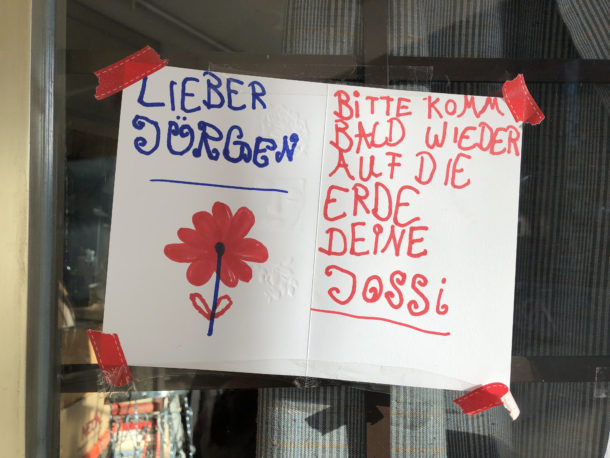 LIEBER
JÖRGEN
BITTE KOMM
BALD WIEDER
AUF DIE
ERDE
DEINE
JOSSi